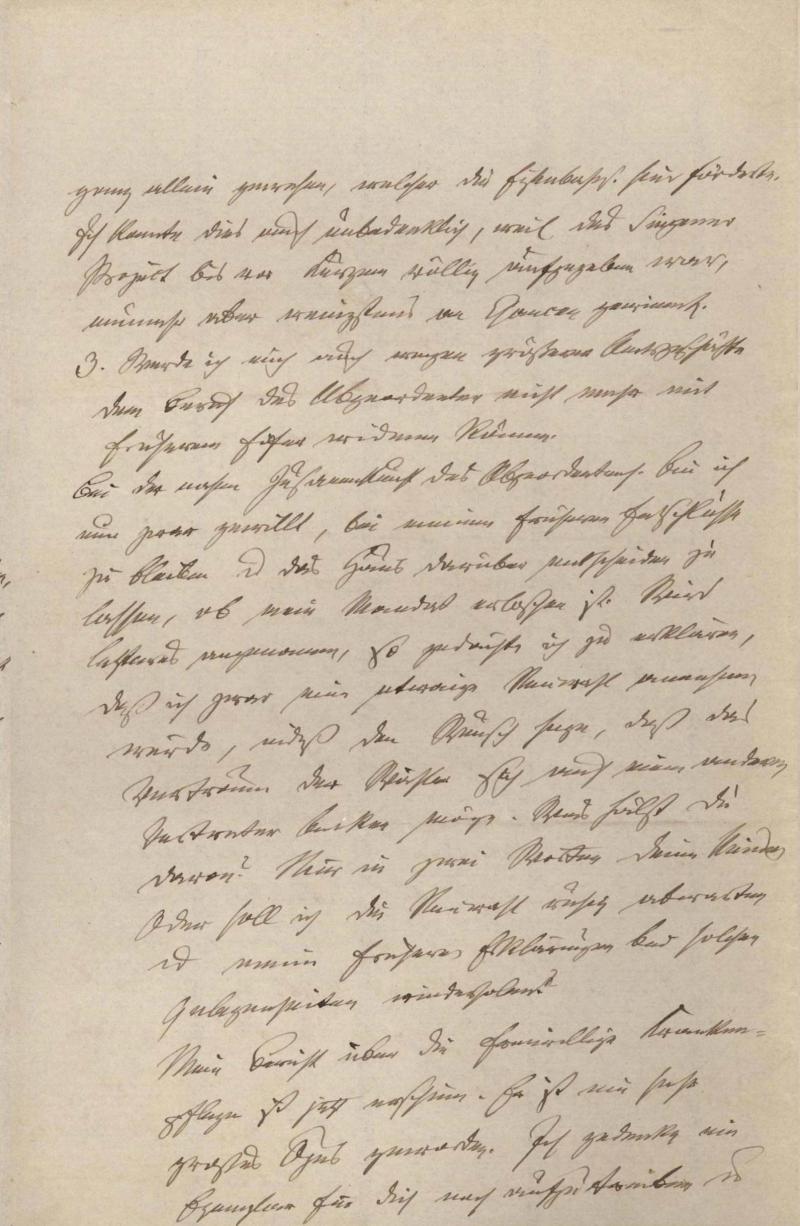 ganz allein gewesen, welcher die Eisenbahn. hier förderte.
Ich konnte dies auch unbedenklich, weil das Singener
Project bis vor Kurzem völlig aufgegeben war,
nunmehr aber wenigstens an Chancen gewinnt.
3. Werde ich mich auch wegen größerer Amtsgeschäfte
dem Beruf des Abgeordneten nicht mehr mit
früherem Eifer widmen können.
Bei der nahen Zusammenkunft des Abgeordnetenh. bin ich
nun zwar gewillt, bei meinem früheren Entschlusse
zu bleiben u das Haus darüber entscheiden zu
lassen, ob mein Mandat erloschen ist. Wird
letzteres angenommen, so gedächte ich zu erklären,
daß ich zwar eine etwaige Neuwahl annehmen
würde, indeß den Wunsch hege, daß das
Vertrauen der Wähler sich auf einen anderen
Vertreter lenken möge. Was hälst Du
davon? Nur in zwei Worten Deine Meinung
Oder soll ich die Neuwahl ruhig abwarten
u meine früheren Erklärungen bei solchen
Gelegenheiten wiederholen?
Mein Bericht über die freiwillige Kranken=
pflege ist jetzt erschienen. Er ist ein sehr
großes Opus geworden. Ich gedenke ein
Exemplar für Dich noch aufzutreiben u